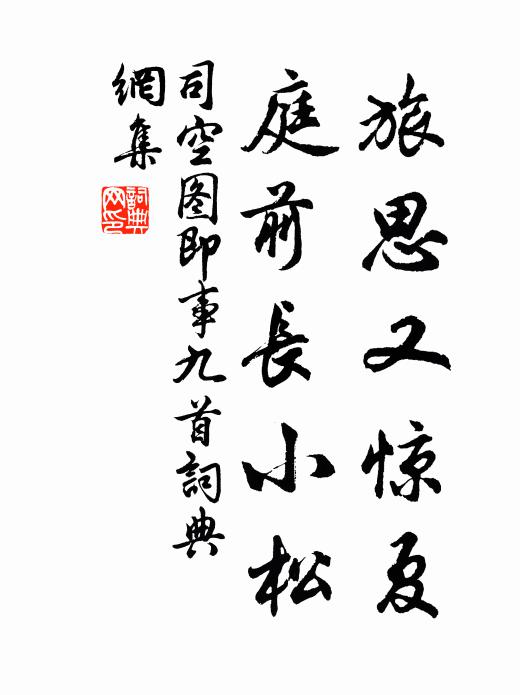 旅思又惊夏
庭前長小松
司空图即事九首詞典
網集
詞典网印